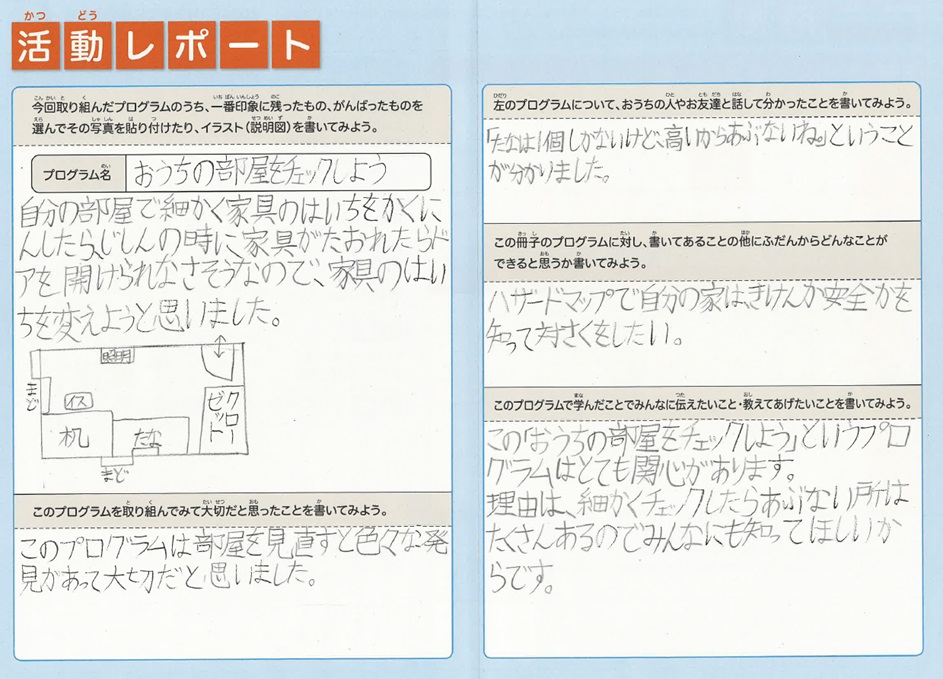 活動レポート
今回取り組んだプログラムのうち、一番印象に残ったもの、がんばったものを
選んでその写真を貼り付けたり、イラスト(説明図)を書いてみよう。
プログラム名 おうちの部屋をチェックしよう
自分の部屋で細かく家具のはいちをかくに
んしたら、じしんの時に家具がたおれたらド
アを開けられなさそうなので、家具のはい
ちを変えようと思いました。
照明
まど
イス
机
たな
クローゼット
まど
このプログラムを取り組んでみて大切だと思ったことを書いてみよう。
このプログラムは部屋を見直すと色々な発
見があって大切だと思いました。
左のプログラムについて、おうちの人やお友達と話して分かったことを書いてみよう。
「たなは1個しかないけど、高いからあぶないね。」ということ
が分かりました。
この冊子のプログラムに対し、書いてあることの他にふだんからどんなことが
できると思うか書いてみよう。
ハザードマップで自分の家は、きけんか安全かを
知って対さくをしたい。
このプログラムで学んだことでみんなに伝えたいこと・教えてあげたいことを書いてみよう。
この「おうちの部屋をチェックしよう」というプロ
グラムはとても関心があります。
理由は、細かくチェックしたらあぶない所は
たくさんあるのでみんなにも知ってほしいか
らです。